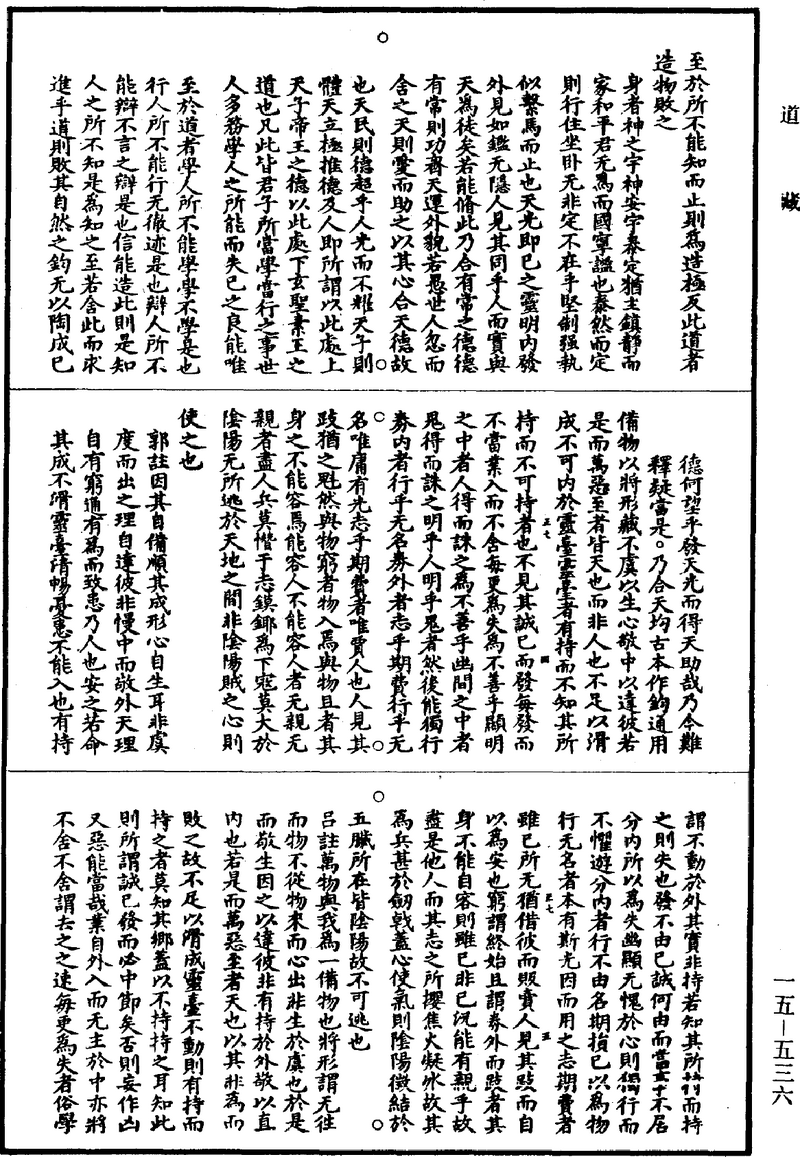 道藏
至於所不能知而止則為造極反此道者
造物敗之
身者神之宇神安宇泰定猶主鎮靜而
家和平君无為而國寧謐也泰然而定
則行住坐卧无非定不在乎堅制强執
似繫馬而止也天光即已之靈明內發
外見如鑑无隱人見其同乎人而實與
天為徒矣若能脩此乃合有常之德德
有常則功齊天運外貌若愚世人忽而
舍之天則愛而助之以其心合天德故
也天民則德超乎人光而不耀天子則
體天立極推德及人即所謂以此處上
天子帝王之德以此處下玄聖素王之
道也凡此皆君子所當學當行之事世
人多務學人之所能而失已之良能唯
至於道者學人所不能學學不學是也
行人所不能行无徹迹是也辯人所不
能辯不言之辯是也信能造此則是知
人之所不知是為知之至若舍此而求
進乎道則敗其自然之鈞无以陶成已
德何望乎發天光而得天助哉乃今難
釋疑當是○乃合天均古本作鈞通用
備物以將形藏不虞以生心敬中以達彼若
是而萬惡至者皆天也而非人也不足以滑
成不可內於靈臺靈臺者有持而不知其所
持而不可持者也不見其誠已而發每發而
不當業入而不舍每更為失為不善乎顯明
之中者人得而誅之為不善乎幽間之中者
鬼得而誅之明乎人明乎鬼者然後能獨行
券內者行乎无名券外者志乎期費行乎无
名唯庸有光志乎期費者唯賈人也人見其
跂猶之魁然與物窮者物入焉與物且者其
身之不能容焉能容人不能容人者无親无
親者盡人兵莫憯于志鏌鋣為下寇莫大於
陰陽无所逃於天地之間非陰陽賊之心則
使之也
郭註因其自備順其成形心自生耳非虞
度而出之理自達彼非慢中而敬外天理
自有窮通有為而致患乃人也安之若命
其成不滑靈臺清暢憂患不能入也有持
謂不動於外其實非持若知其所持而持
之則失也發不由已誠何由而當不居
分內所以為失幽顯无愧於心則獨行而
不懼遊分內者行不由名期損已以為物
行无名者本有斯光因而用之志期費者
雖已所无猶借彼而販賣人見其跂而自
以為安也窮謂終始且謂券外而跂者其
身不能自容則雖已非已況能有親乎故
盡是他人而其志之所攖焦火凝冰故其
為兵甚於劒戟蓋心使氣則陰陽徵結於
五臟所在皆陰陽故不可逃也
呂註萬物與我為一備物也將形謂无往
而物不從物來而心出非生於虞也於是
而敬生因之以達彼非有持於外敬以直
內也若是而萬惡至者天也以其非為而
敗之故不足以滑成靈臺不動則有持而
持之者莫知其鄉蓋以不持持之耳知此
則所謂誠已發而必中節矣否則妄作凶
又惡能當哉業自外入而无主於中亦將
不舍不舍謂去之之速每更為失者俗學
一五—五三六